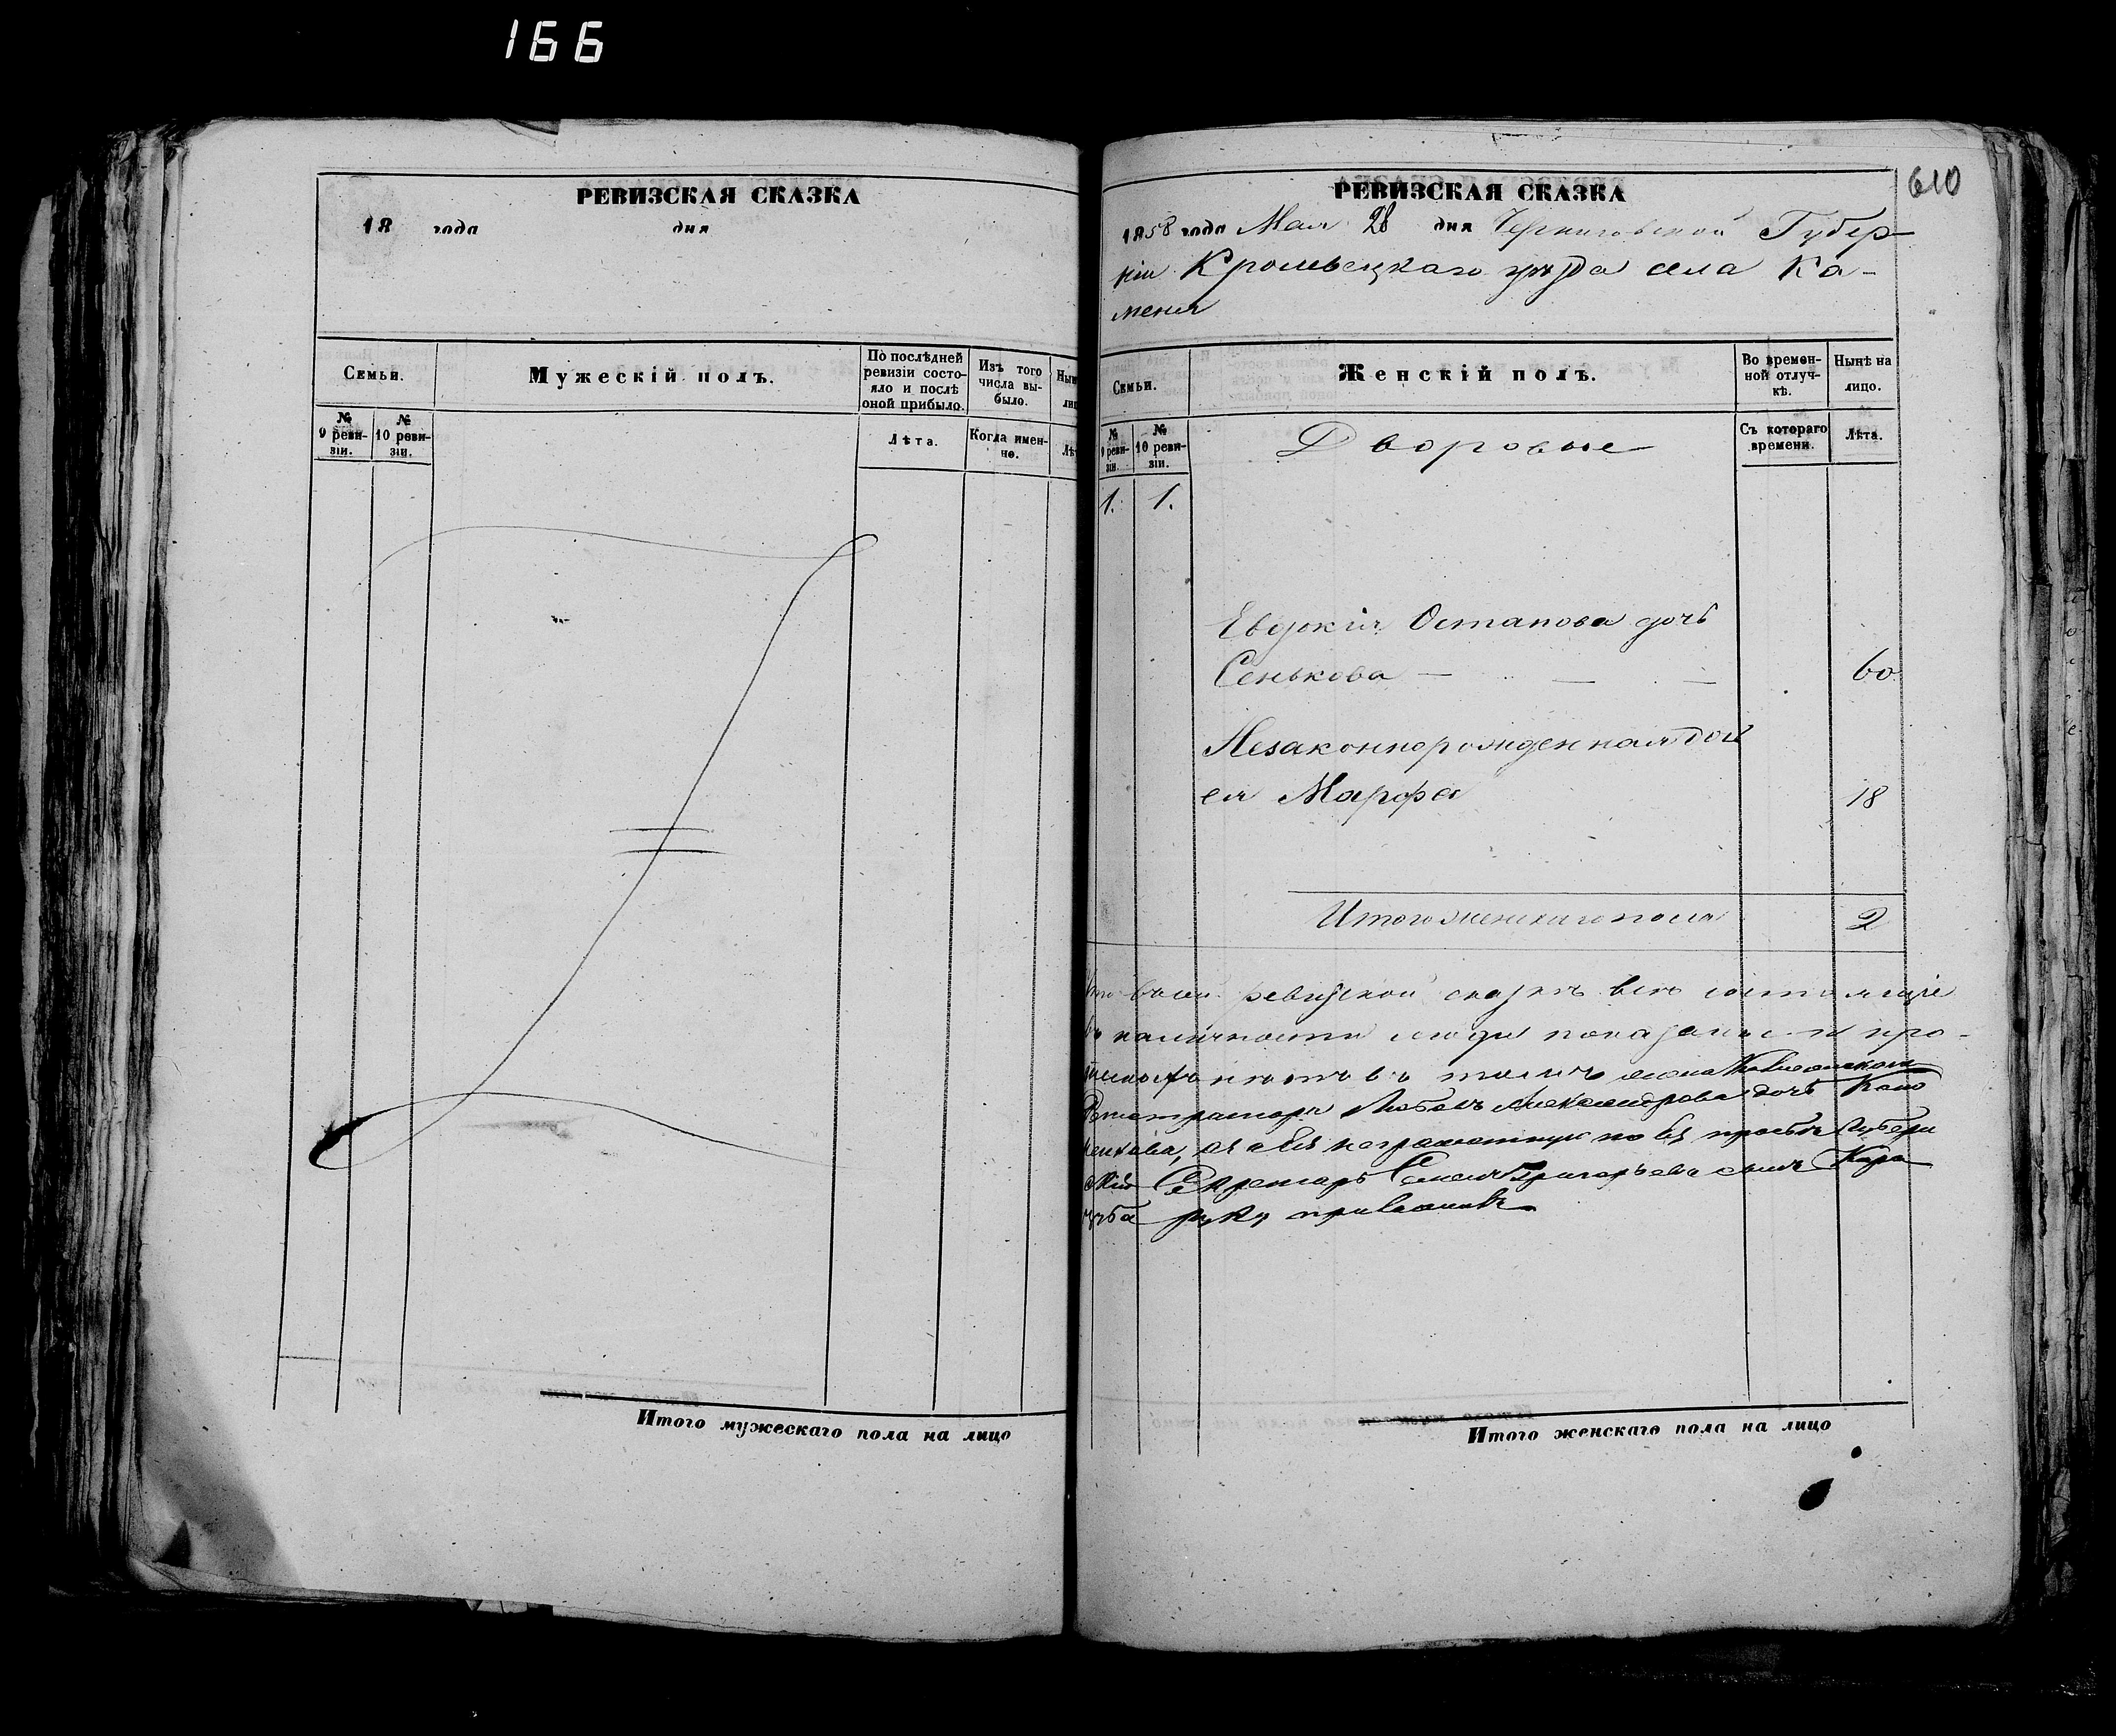 166
РЕВИЗСКАЯ СКАЗКА
18 года дня
Семьи.
Мужескій полъ.
По послѣдней ревизіи состояло и послѣ оной прибыло.
Изъ того числа выбыло.
№ 9 ревизіи.
№ 10 ревизіи.
Лѣта.
Когда именно.
Итого мужескаго пола на лицо
610
РЕВИЗСКАЯ СКАЗКА
1858 года Мая 28 дня Черниговской Губер-
ніи Кролевецкаго уѣзда села Ка-
меня
Семьи.
Женскій полъ.
Во временной отлучкѣ.
Нынѣ на лицо.
№ 9 ревизіи.
№ 10 ревизіи.
Дворовые
Съ котораго времени.
Лѣта.
1. 1.
Евдокія Остапова дочь
Сенькова — — — 60
Незаконнорожденная доч
ея Марфа 18
Итого женскаго пола 2
что въ сей ревизской сказкѣ всѣ состоящіе
въ наличности люди показаны и про-
нѣтъ въ томъ
Любовь Александрова дочь
а за нея неграмотную по ея прозьбѣ Губерн
скій Секретарь Семенъ Григорьевъ сынъ
руку приложилъ
Итого женскаго пола на лицо